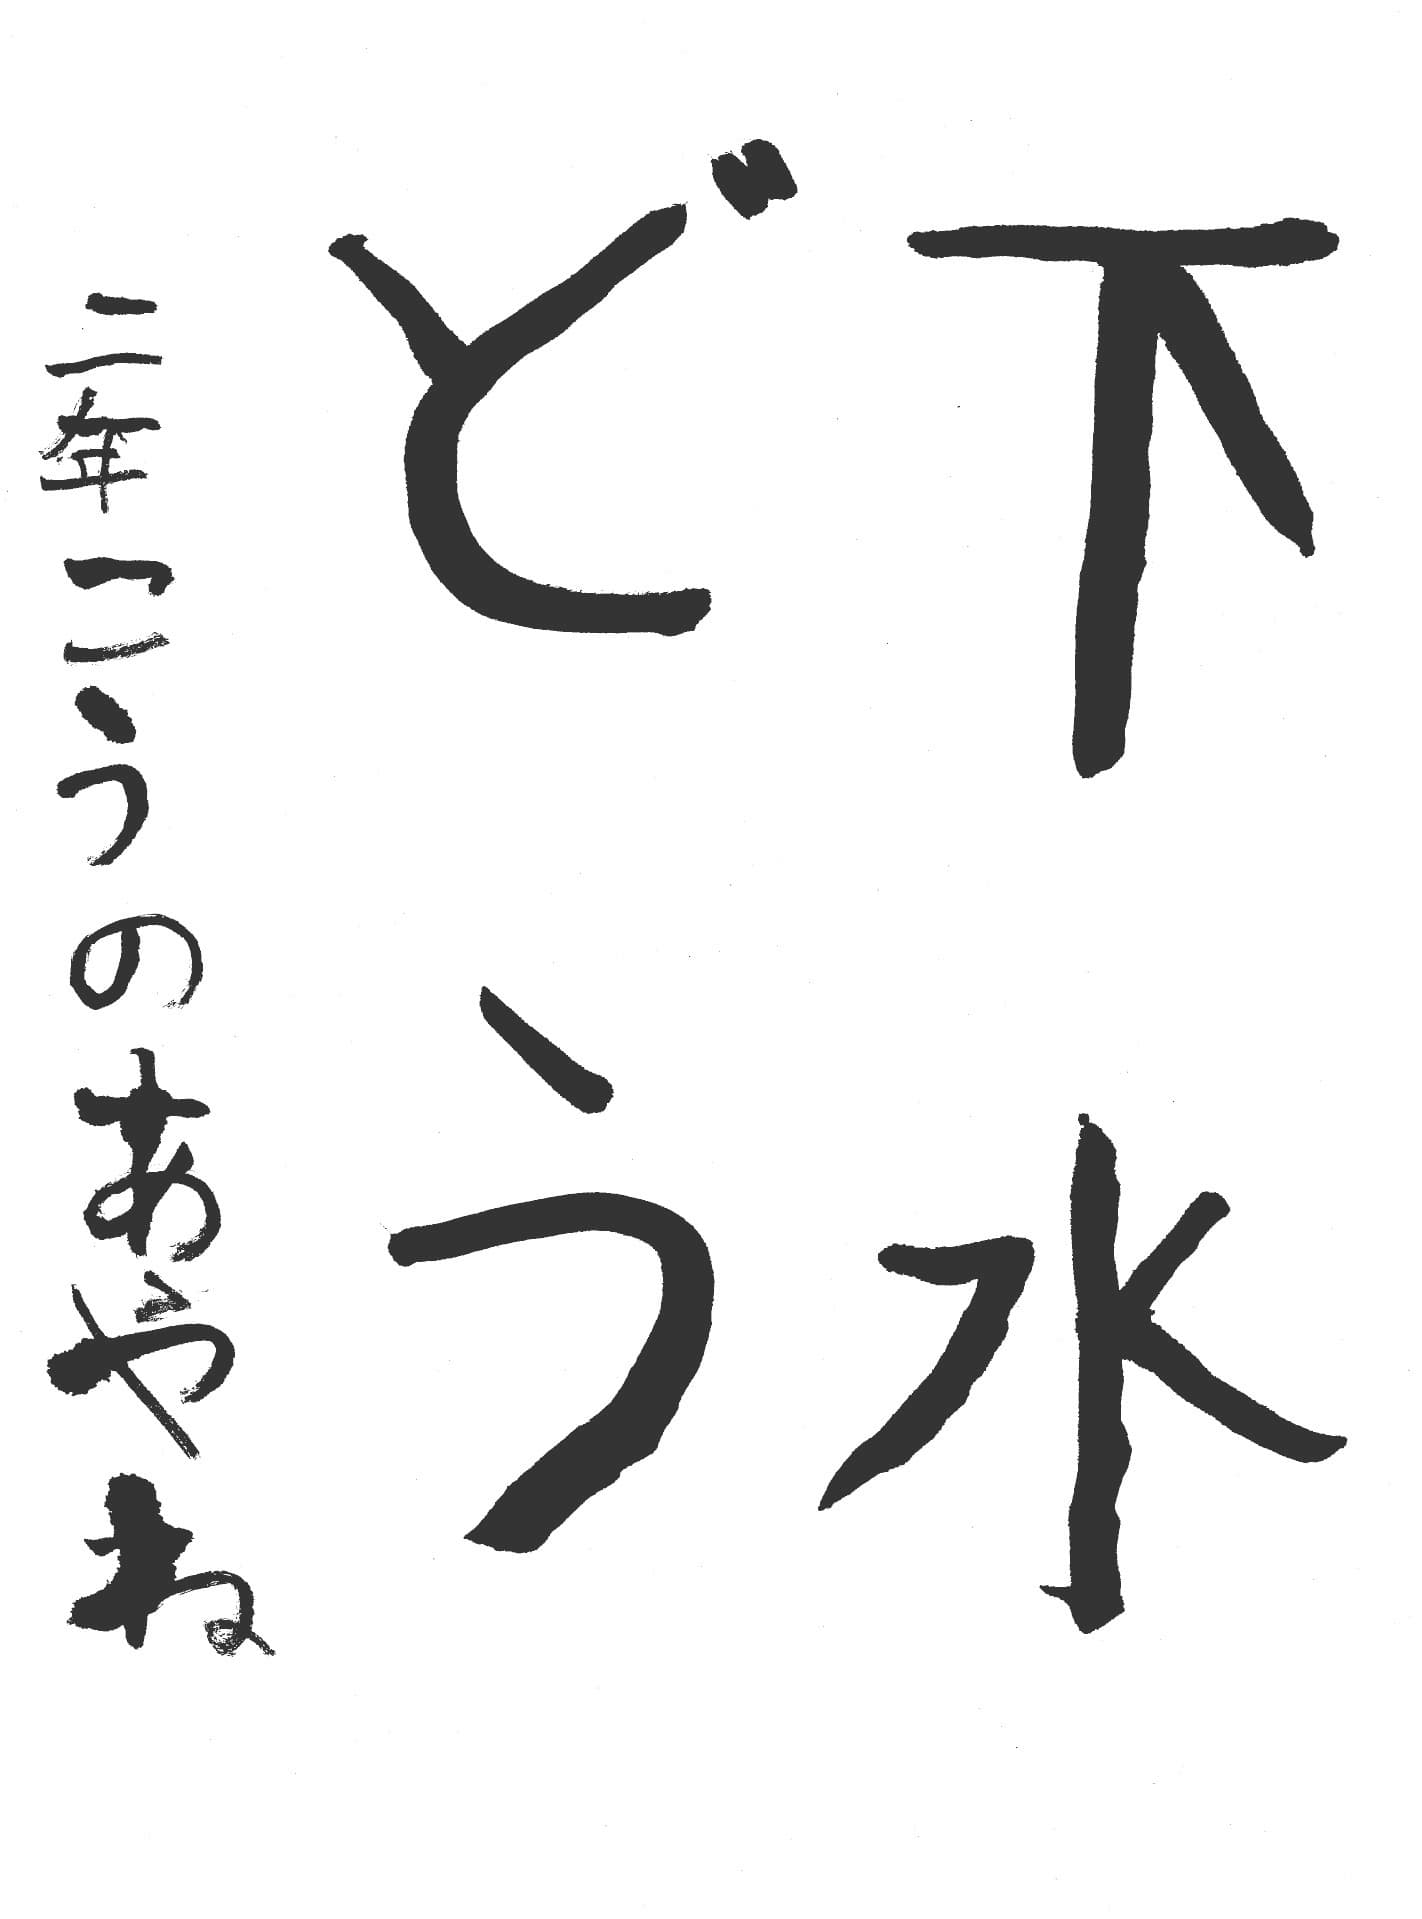 下水
どう
二年こうのあやね